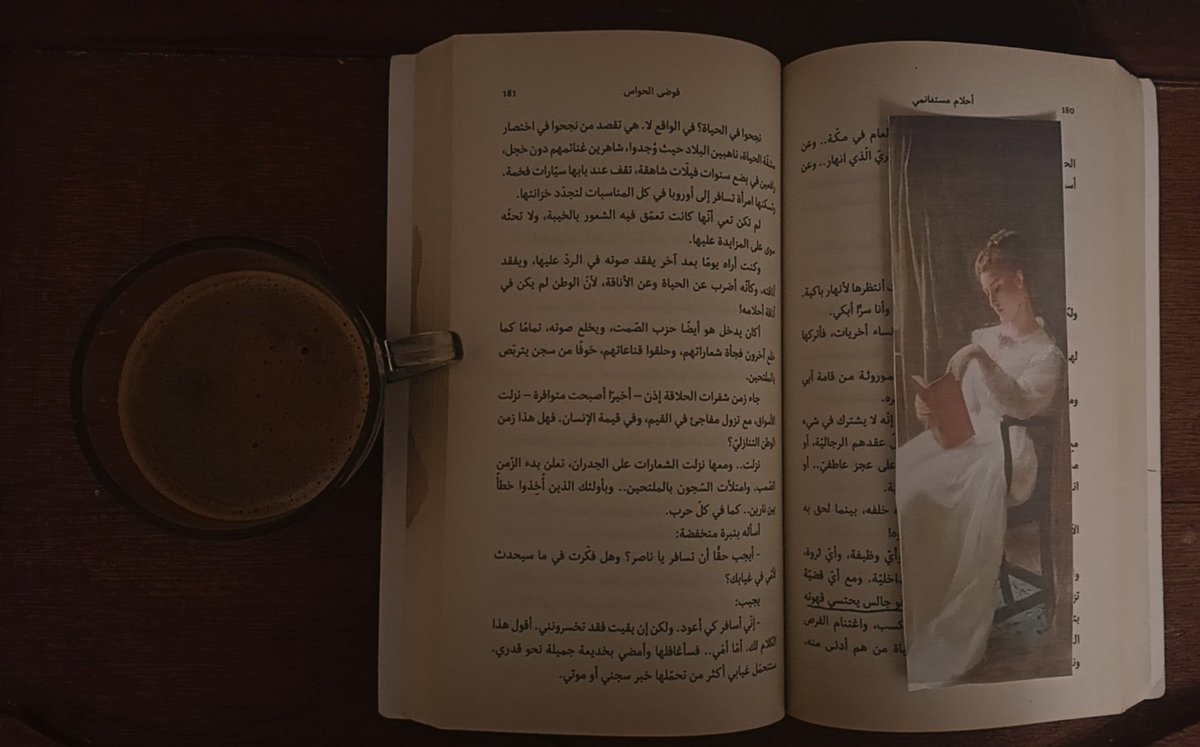 أحلام مستغانمي
180
لعام في مكّة.. وعن
ريّ الّذي انهار.. وعن
أنتظرها لأنهار باكية.
وأنا سرًّا أبكي.
ساء أخريات، فأتركها
موروثة من قامة أبي
إنّه لا يشترك في شيء
عقدهم الرجاليّة، أو
على عجز عاطفيّ.. أو
خلفه، بينما لحق به
وأيّ وظيفة، وأيّ ثروة.
داخليّة. ومع أيّ قضيّة
جالس يحتسي قهوته
كسب، واغتنام الفرص
من هم أدنى منه،
فوضى الحواس
181
نجحوا في الحياة؟ في الواقع لا. هي تقصد من نجحوا في اختصار
الحياة، ناهبين البلاد حيث وُجدوا، شاهرين غنائمهم دون خجل،
في بضع سنوات فيلّات شاهقة، تقف عند بابها سيّارات فخمة.
وتسكنها امرأة تسافر إلى أوروبا في كل المناسبات لتجدّد خزانتها.
لم تكن تعي أنّها كانت تعمّق فيه الشعور بالخيبة، ولا تحثّه
سوى على المزايدة عليها.
وكنت أراه يومًا بعد آخر يفقد صوته في الردّ عليها، ويفقد
أناقته، وكأنّه أضرب عن الحياة وعن الأناقة، لأنّ الوطن لم يكن في
أناقة أحلامه!
أكان يدخل هو أيضًا حزب الصّمت، ويخلع صوته، تمامًا كما
خلع آخرون فجأة شعاراتهم، وحلقوا قناعاتهم، خوفًا من سجن يتربّص
بالملتحين.
جاء زمن شفرات الحلاقة إذن – أخيرًا أصبحت متوافرة – نزلت
الأسواق، مع نزول مفاجئ في القيم، وفي قيمة الإنسان. فهل هذا زمن
الوطن التنازليّ؟
نزلت.. ومعها نزلت الشعارات على الجدران، تعلن بدء الزّمن
الصّعب. وامتلأت السّجون بالملتحين.. وبأولئك الذين أُخِذوا خطأً
بين نارين.. كما في كلّ حرب.
أسأله بنبرة منخفضة:
- أيجب حقًّا أن تسافر يا ناصر؟ وهل فكّرت في ما سيحدث
لأمّي في غيابك؟
يجيب:
- إنّي أسافر كي أعود. ولكن إن بقيت فقد تخسرونني. أقول هذا
الكلام لك. أمّا أمّي.. فسأغافلها وأمضي بخديعة جميلة نحو قدري.
ستتحمّل غيابي أكثر من تحمّلها خبر سجني أو موتي.